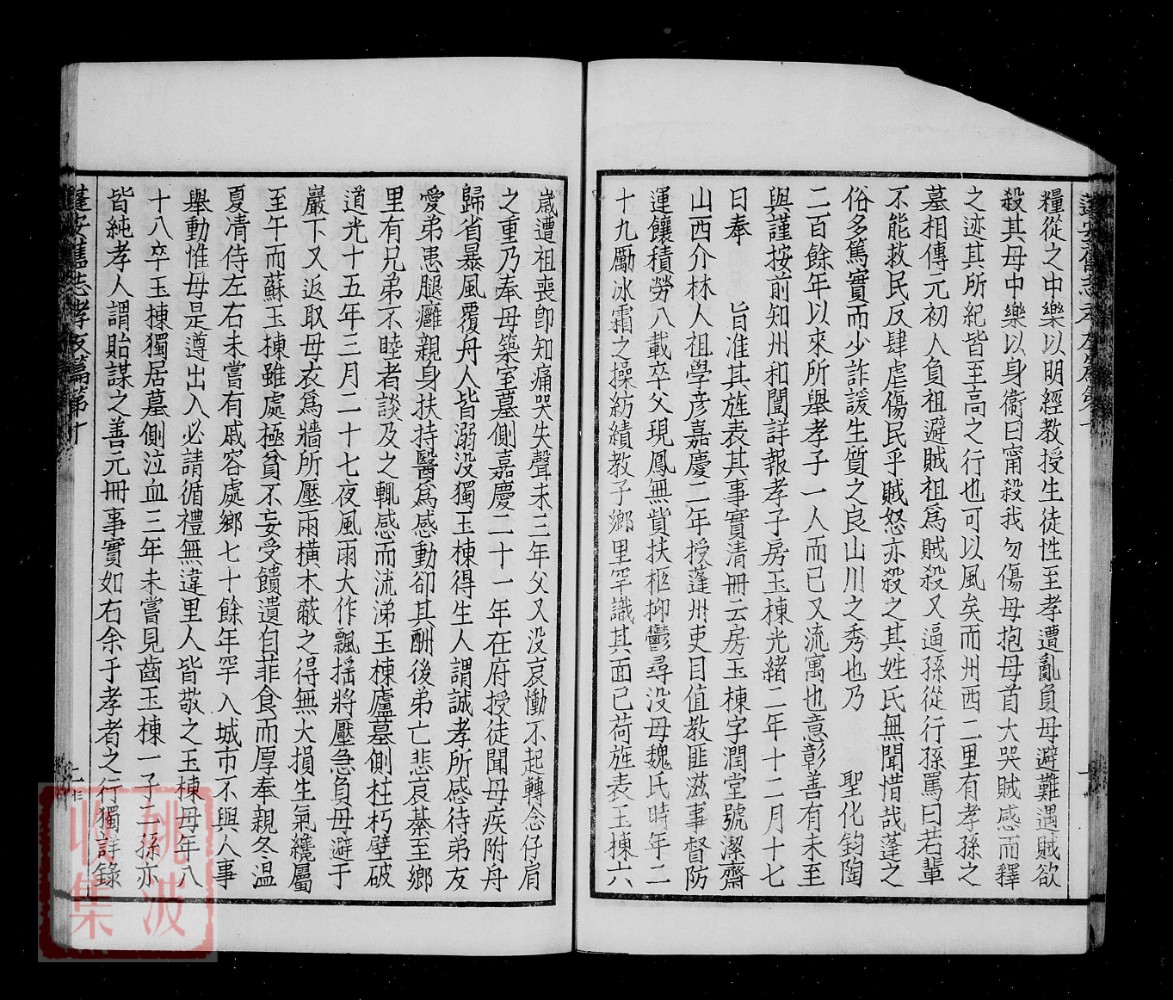 糧從之中樂以明經教授生徒性至孝遭亂負母避難遇賊欲
殺其母中樂以身衛曰甯殺我勿傷母抱母首大哭賊感而釋
之迹其所紀皆至高之行也可以風矣而州西二里有孝孫之
墓相傳元初人負祖避賊祖爲賊殺又逼孫從行孫罵曰若輩
不能救民反肆虐傷民乎賊怒亦殺之其姓氏無聞惜哉蓬之
俗多篤實而少詐諼生質之良山川之秀也乃　　聖化鈞陶
二百餘年以來所舉孝子一人而已又流寓也意彰善有未至
與謹按前知州和閶詳報孝子房玉棟光緒二年十二月十七
日奉　　旨准其旌表其事實清冊云房玉棟字潤堂號潔齋
山西介林人祖學彥嘉慶二年授蓬州吏目值教匪滋事督防
運饟積勞八載卒父現鳳無貲扶柩抑鬱尋没母魏氏時年二
十九勵冰霜之操紡績教子鄉里罕識其面已荷旌表玉棟六
歲遭祖喪卽知痛哭失聲未三年父又没哀慟不起轉念仔肩
之重乃奉母築室墓側嘉慶二十一年在府授徒聞母疾附舟
歸省暴風覆舟人皆溺没獨玉棟得生人謂誠孝所感待弟友
愛弟患腿癰親身扶持醫爲感動卻其酬後弟亡悲哀綦至鄉
里有兄弟不睦者談及之輒感而流涕玉棟廬墓側柱朽壁破
道光十五年三月二十七夜風雨大作飄搖將壓急負母避于
巖下又返取母衣爲牆所壓兩橫木蔽之得無大損生氣纔屬
至午而蘇玉棟雖處極貧不妄受饋遺自菲食而厚奉親冬溫
夏凊侍左右未嘗有戚容處鄉七十餘年罕入城市不與人事
舉動惟母是遵出入必請循禮無違里人皆敬之玉棟母年八
十八卒玉棟獨居墓側泣血三年未嘗見齒玉棟一子三孫亦
皆純孝人謂貽謀之善元冊事實如右余于孝者之行獨詳錄
蓬安舊志孝友篇第十
姚波
收集